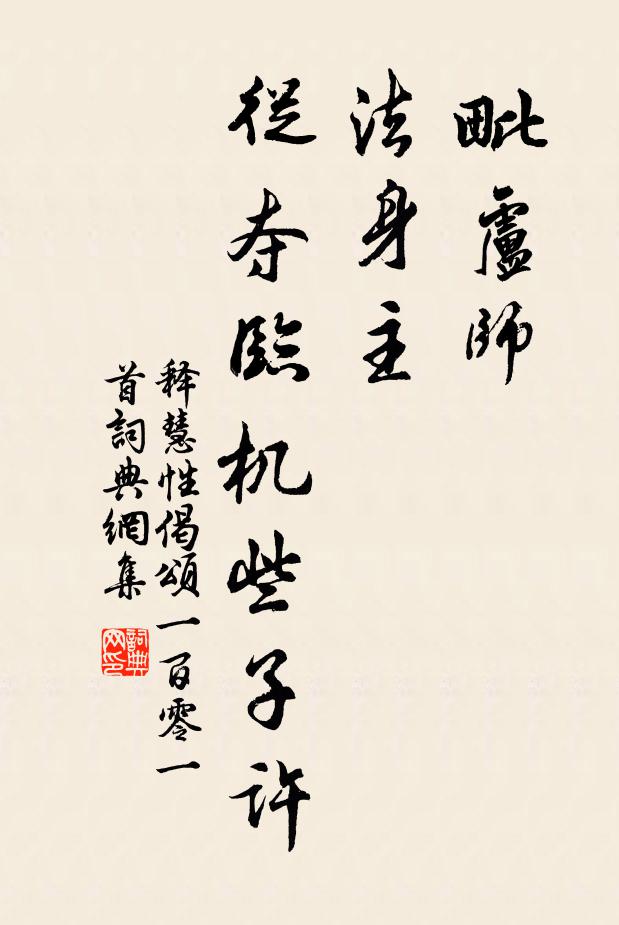 毗盧師
法身主
從夺臨机些子许
释慧性偈頌一百零一
首詞典網集
詞典
网印